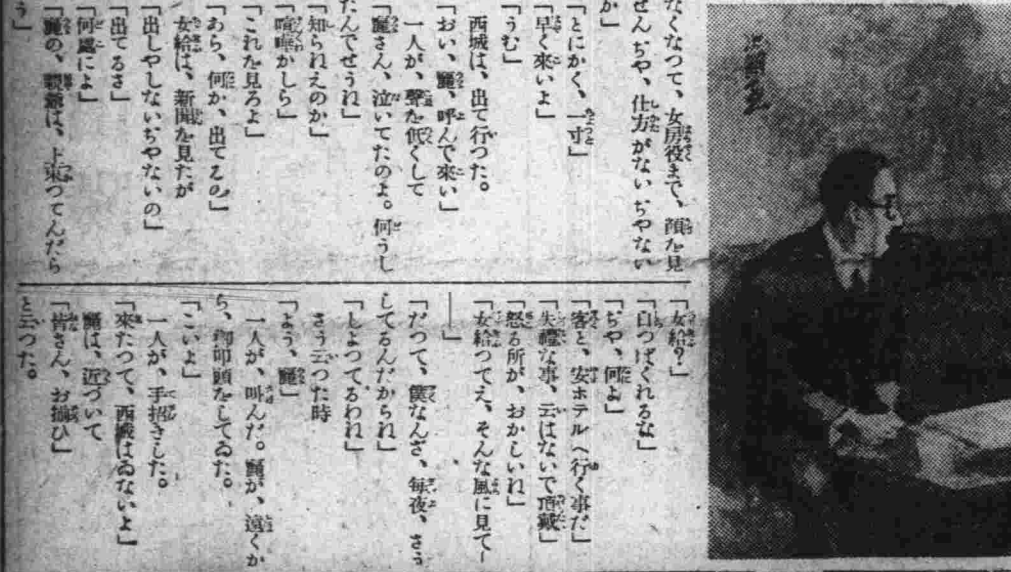 なくなつて、女房役まで、顔を見
せんぢや、仕方がないぢやない
か」
「とにかく、一寸」
「早く來いよ」
「うむ」
西城は、出て行つた。
「おい、麗、呼んで來い」
一人が、聲を低くして
「麗さん、泣いてたのよ。何うし
たんでせうね」
「知られえのか」
「喧嘩かしら」
「これを見ろよ」
「あら、何か、出てるの」
女給は、新聞を見たが
「出しやしないぢやないの」
「出てるさ」
「何處によ」
「麗の、親爺は、上京つてんだら
う」
「女給?」
「白つぱくれるな」
「ぢや、何よ」
「客と、安ホテルへ行く事だ」
「失禮な事、云はないで頂戴」
「怒る所が、おかしいね」
「女給つてえ、そんな風に見て〜
――」
「だつて、僕なんざ、毎夜、さう
してるんだからね」
「しよつてるわね」
さう云つた時
「よう、麗」
一人が、叫んだ。麗が、遠くか
ら、御叩頭をしてゐた。
「こいよ」
一人が、手招きした。
「來たつて、西城はゐないよ」
麗は、近づいて
「皆さん、お揃ひ」
と云つた。